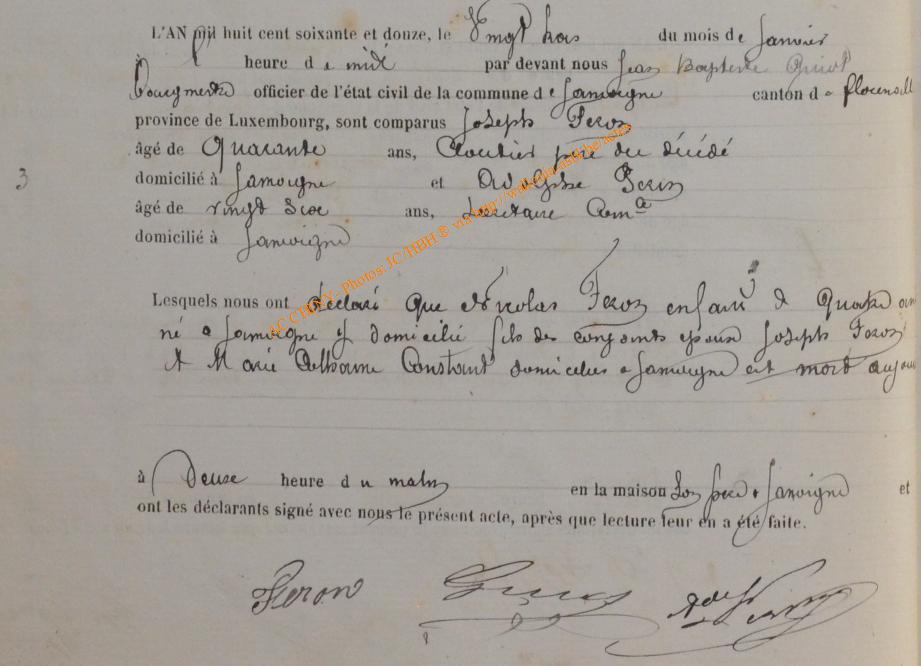 L'AN mil huit cent soixante et douze, le Vingt trois du mois de Janvier
à heure de midi par devant nous Jean Baptiste
Bourgmestre officier de l'état civil de la commune de Jamoigne canton de florenville
province de Luxembourg, sont comparus Joseph Feron
âgé de Quarante ans, Cloutier père du décédé
3
domicilié à Jamoigne et Adolphe
âgé de vingt ans, Secrétaire Comal
domicilié à Jamoigne
AC CHINY - Photos: JC/HBH ® via http://wallonia-asbl.be/actes
Lesquels nous ont déclaré que Nicolas Feron enfant de quatre ans
né à Jamoigne y domicilié fils des conjoints époux Joseph Feron
et Marie Catherine Constant domiciliés à Jamoigne est mort aujour
à Deux heure du matin en la maison son père à Jamoigne et
ont les déclarants signé avec nous le présent acte, après que lecture leur en a été faite.
Feron